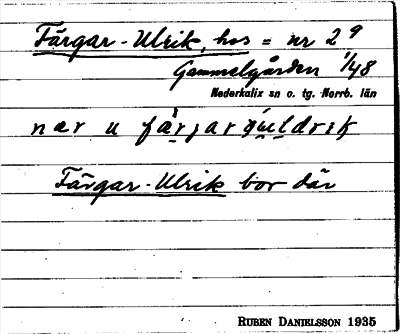 Färgar-Ulrik, hos = nr 2⁹
Gammelgården 1/48
Nederkalix sn o. tg. Norrb. län
nær u
Färgar-Ulrik bor där
RUBEN DANIELSSON 1935